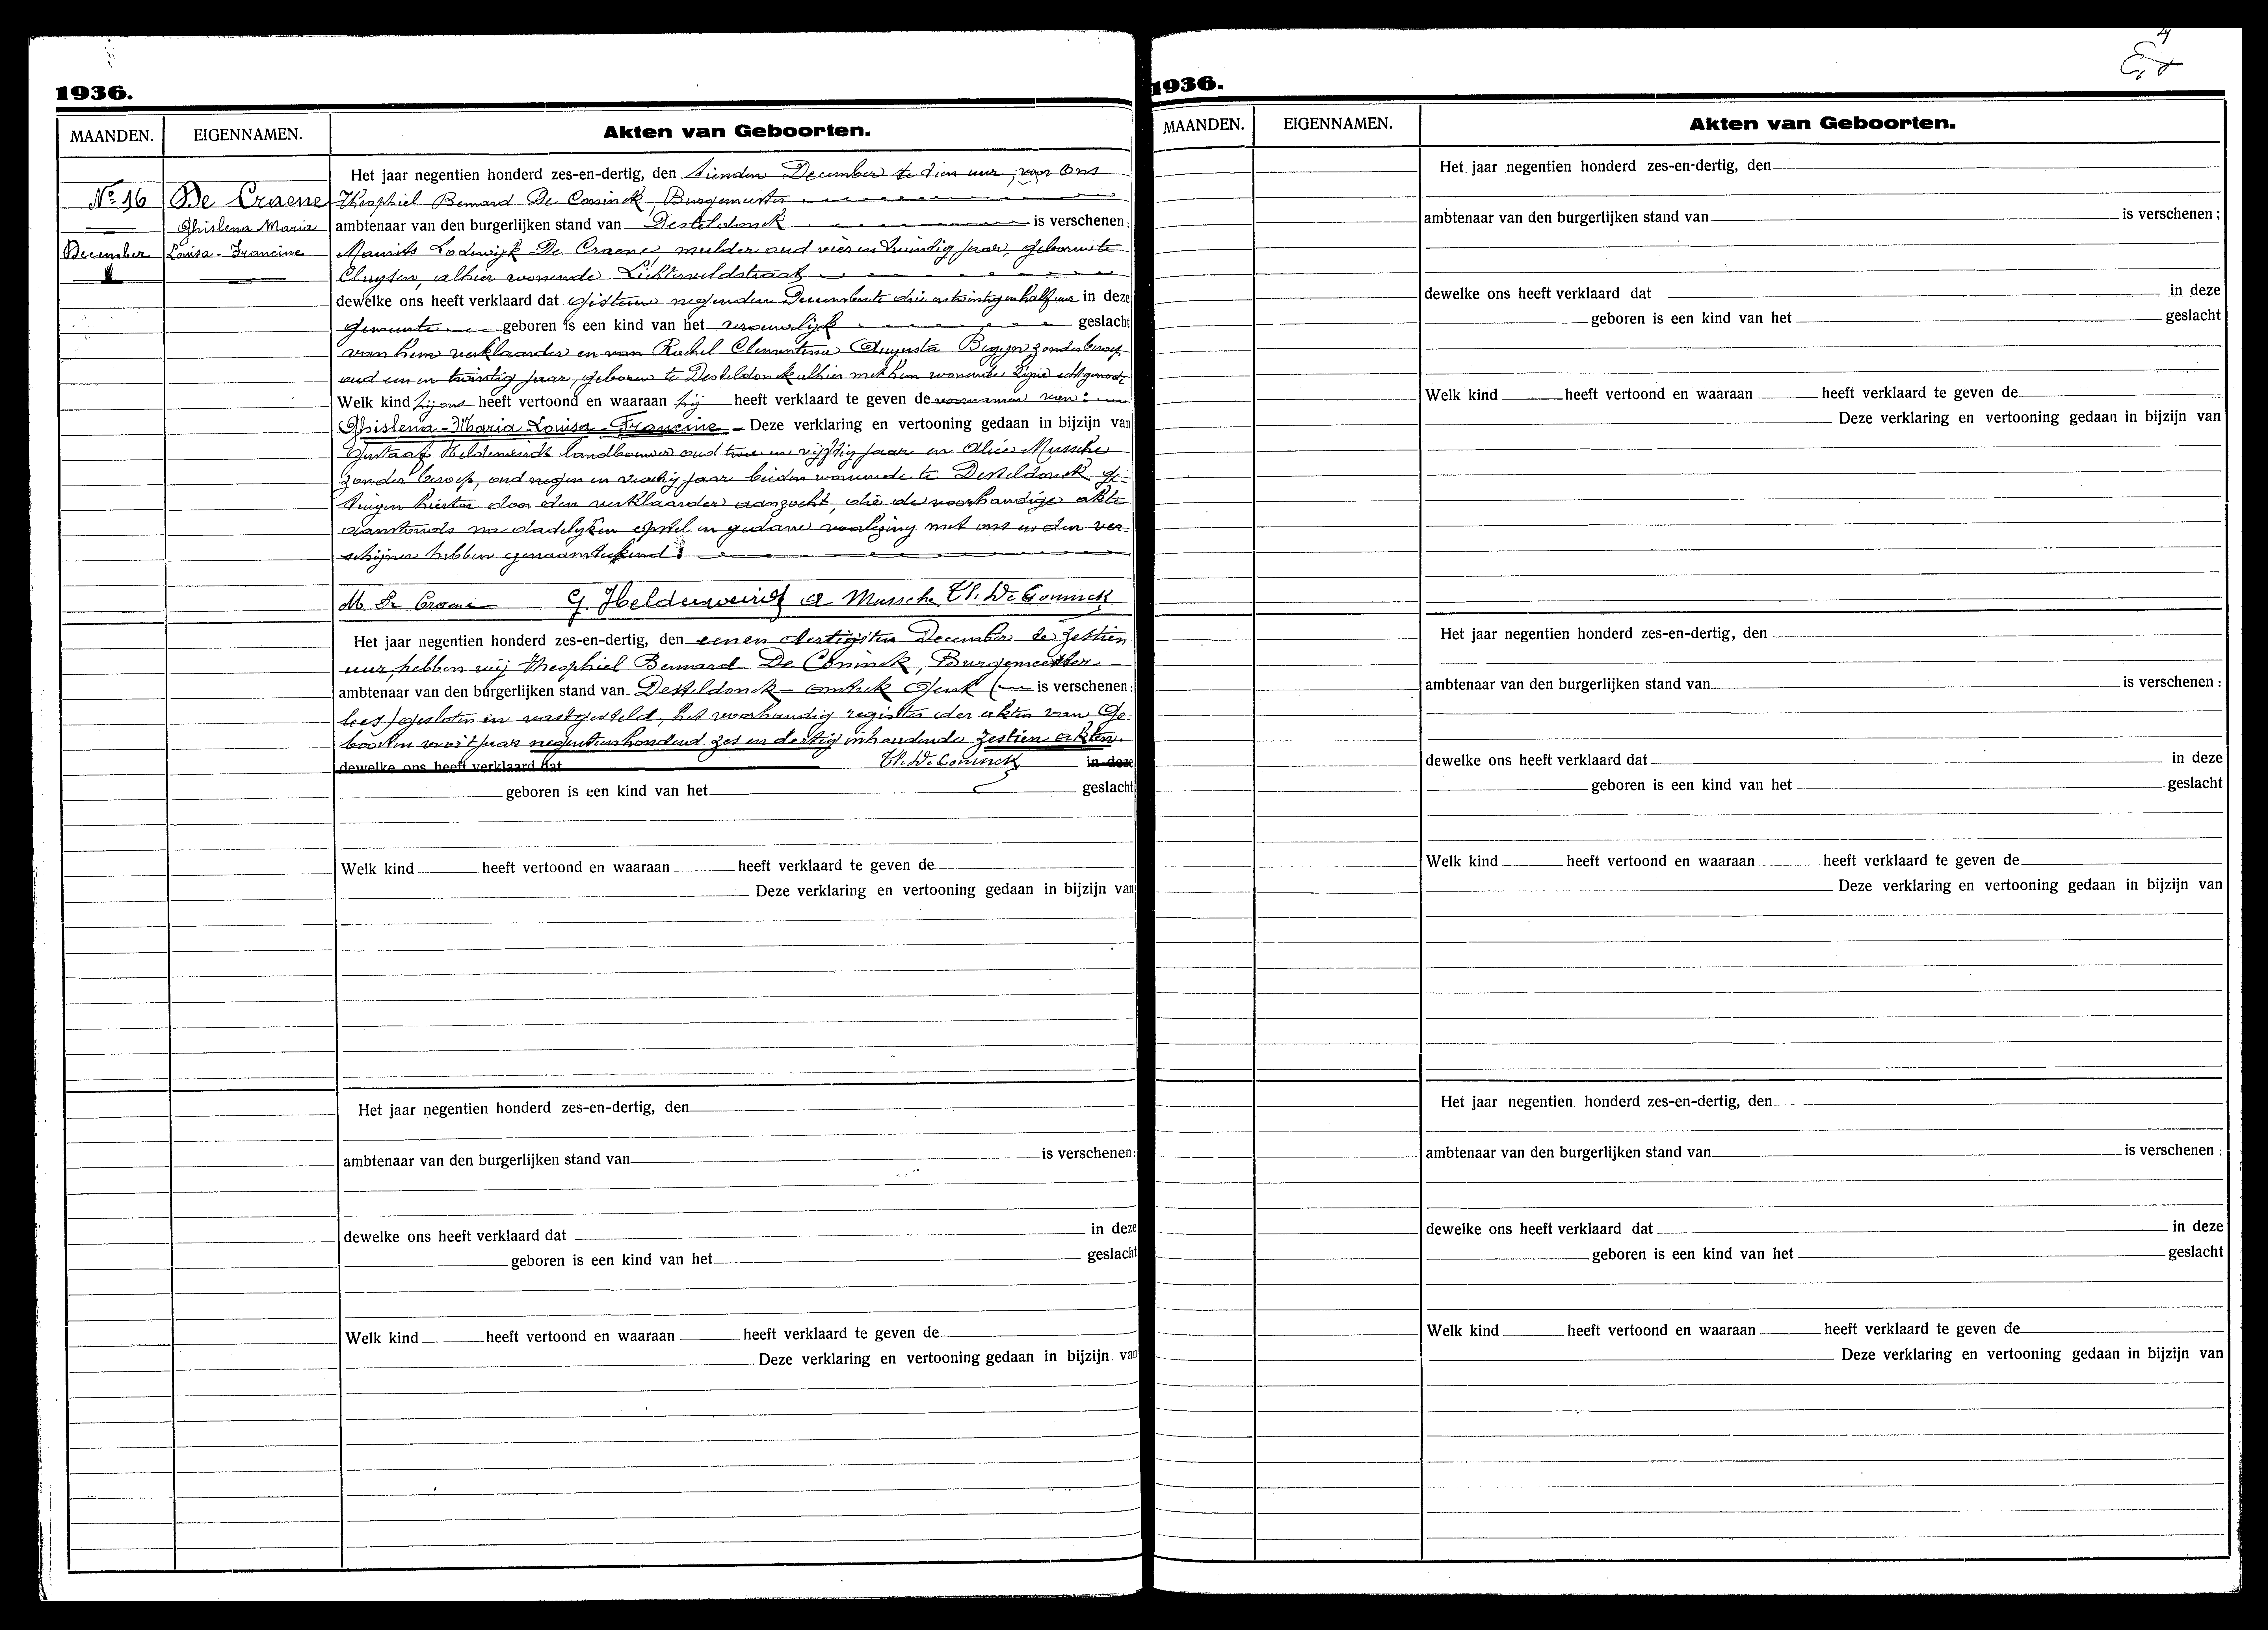 1936.
MAANDEN. EIGENNAMEN. Akten van Geboorten.
Het jaar negentien honderd zes-en-dertig, den tienden December te tien uur, voor Ons
Nº 16 De Craene Theophiel Bernard De Coninck, Burgemeester
Ghislena Maria ambtenaar van den burgerlijken stand van Desteldonck is verschenen:
December Louisa-Francine Maurits Lodewijk De Craene, mulder oud vier en twintig jaar, geboren te
Cluysen, alhier wonende Lichterveldstraat
dewelke ons heeft verklaard dat gisteren negenden December te drie en twintig en half uur in deze
gemeente geboren is een kind van het vrouwelijk geslacht
van hem verklaarder en van Rachel Clementina Augusta Begyn zonder beroep
oud een en twintig jaar, geboren te Desteldonck alhier met hem wonende zijne echtgenoote
Welk kind hij ons heeft vertoond en waaraan hij heeft verklaard te geven de voornamen van:
Ghislena-Maria Louisa-Francine Deze verklaring en vertooning gedaan in bijzijn van
Gustaaf Helderweirdt landbouwer oud twee en vijftig jaar en Alice Mussche
zonder beroep, oud negen en veertig jaar beiden wonende te Desteldonck ge-
tuigen hiertoe door den verklaarder aanzocht, die de voorhandige akte
aanstonds na dadelijken opstel en gedane voorlezing met ons en den ver-
schijner hebben genaamteekend.
M. De Craene G. Helderweirdt A Mussche Th. De Coninck
Het jaar negentien honderd zes-en-dertig, den eenen dertigsten December te zestien
uur, hebben wij Theophiel Bernard De Coninck, Burgemeester
ambtenaar van den burgerlijken stand van Desteldonck - omtrek Gent ( is verschenen:
lees) gesloten en vastgesteld, het voorhandig register der akten van Ge-
boorten voor 't jaar negentienhonderd zes en dertig inhoudende zestien akten.
dewelke ons heeft verklaard dat Th. De Coninck in deze
geboren is een kind van het geslacht
Welk kind heeft vertoond en waaraan heeft verklaard te geven de
Deze verklaring en vertooning gedaan in bijzijn van
Het jaar negentien honderd zes-en-dertig, den
ambtenaar van den burgerlijken stand van is verschenen:
dewelke ons heeft verklaard dat in deze
geboren is een kind van het geslacht
Welk kind heeft vertoond en waaraan heeft verklaard te geven de
Deze verklaring en vertooning gedaan in bijzijn van
1936.
MAANDEN. EIGENNAMEN. Akten van Geboorten.
Het jaar negentien honderd zes-en-dertig, den
ambtenaar van den burgerlijken stand van is verschenen;
dewelke ons heeft verklaard dat in deze
geboren is een kind van het geslacht
Welk kind heeft vertoond en waaraan heeft verklaard te geven de
Deze verklaring en vertooning gedaan in bijzijn van
Het jaar negentien honderd zes-en-dertig, den
ambtenaar van den burgerlijken stand van is verschenen:
dewelke ons heeft verklaard dat in deze
geboren is een kind van het geslacht
Welk kind heeft vertoond en waaraan heeft verklaard te geven de
Deze verklaring en vertooning gedaan in bijzijn van
Het jaar negentien honderd zes-en-dertig, den
ambtenaar van den burgerlijken stand van is verschenen:
dewelke ons heeft verklaard dat in deze
geboren is een kind van het geslacht
Welk kind heeft vertoond en waaraan heeft verklaard te geven de
Deze verklaring en vertooning gedaan in bijzijn van